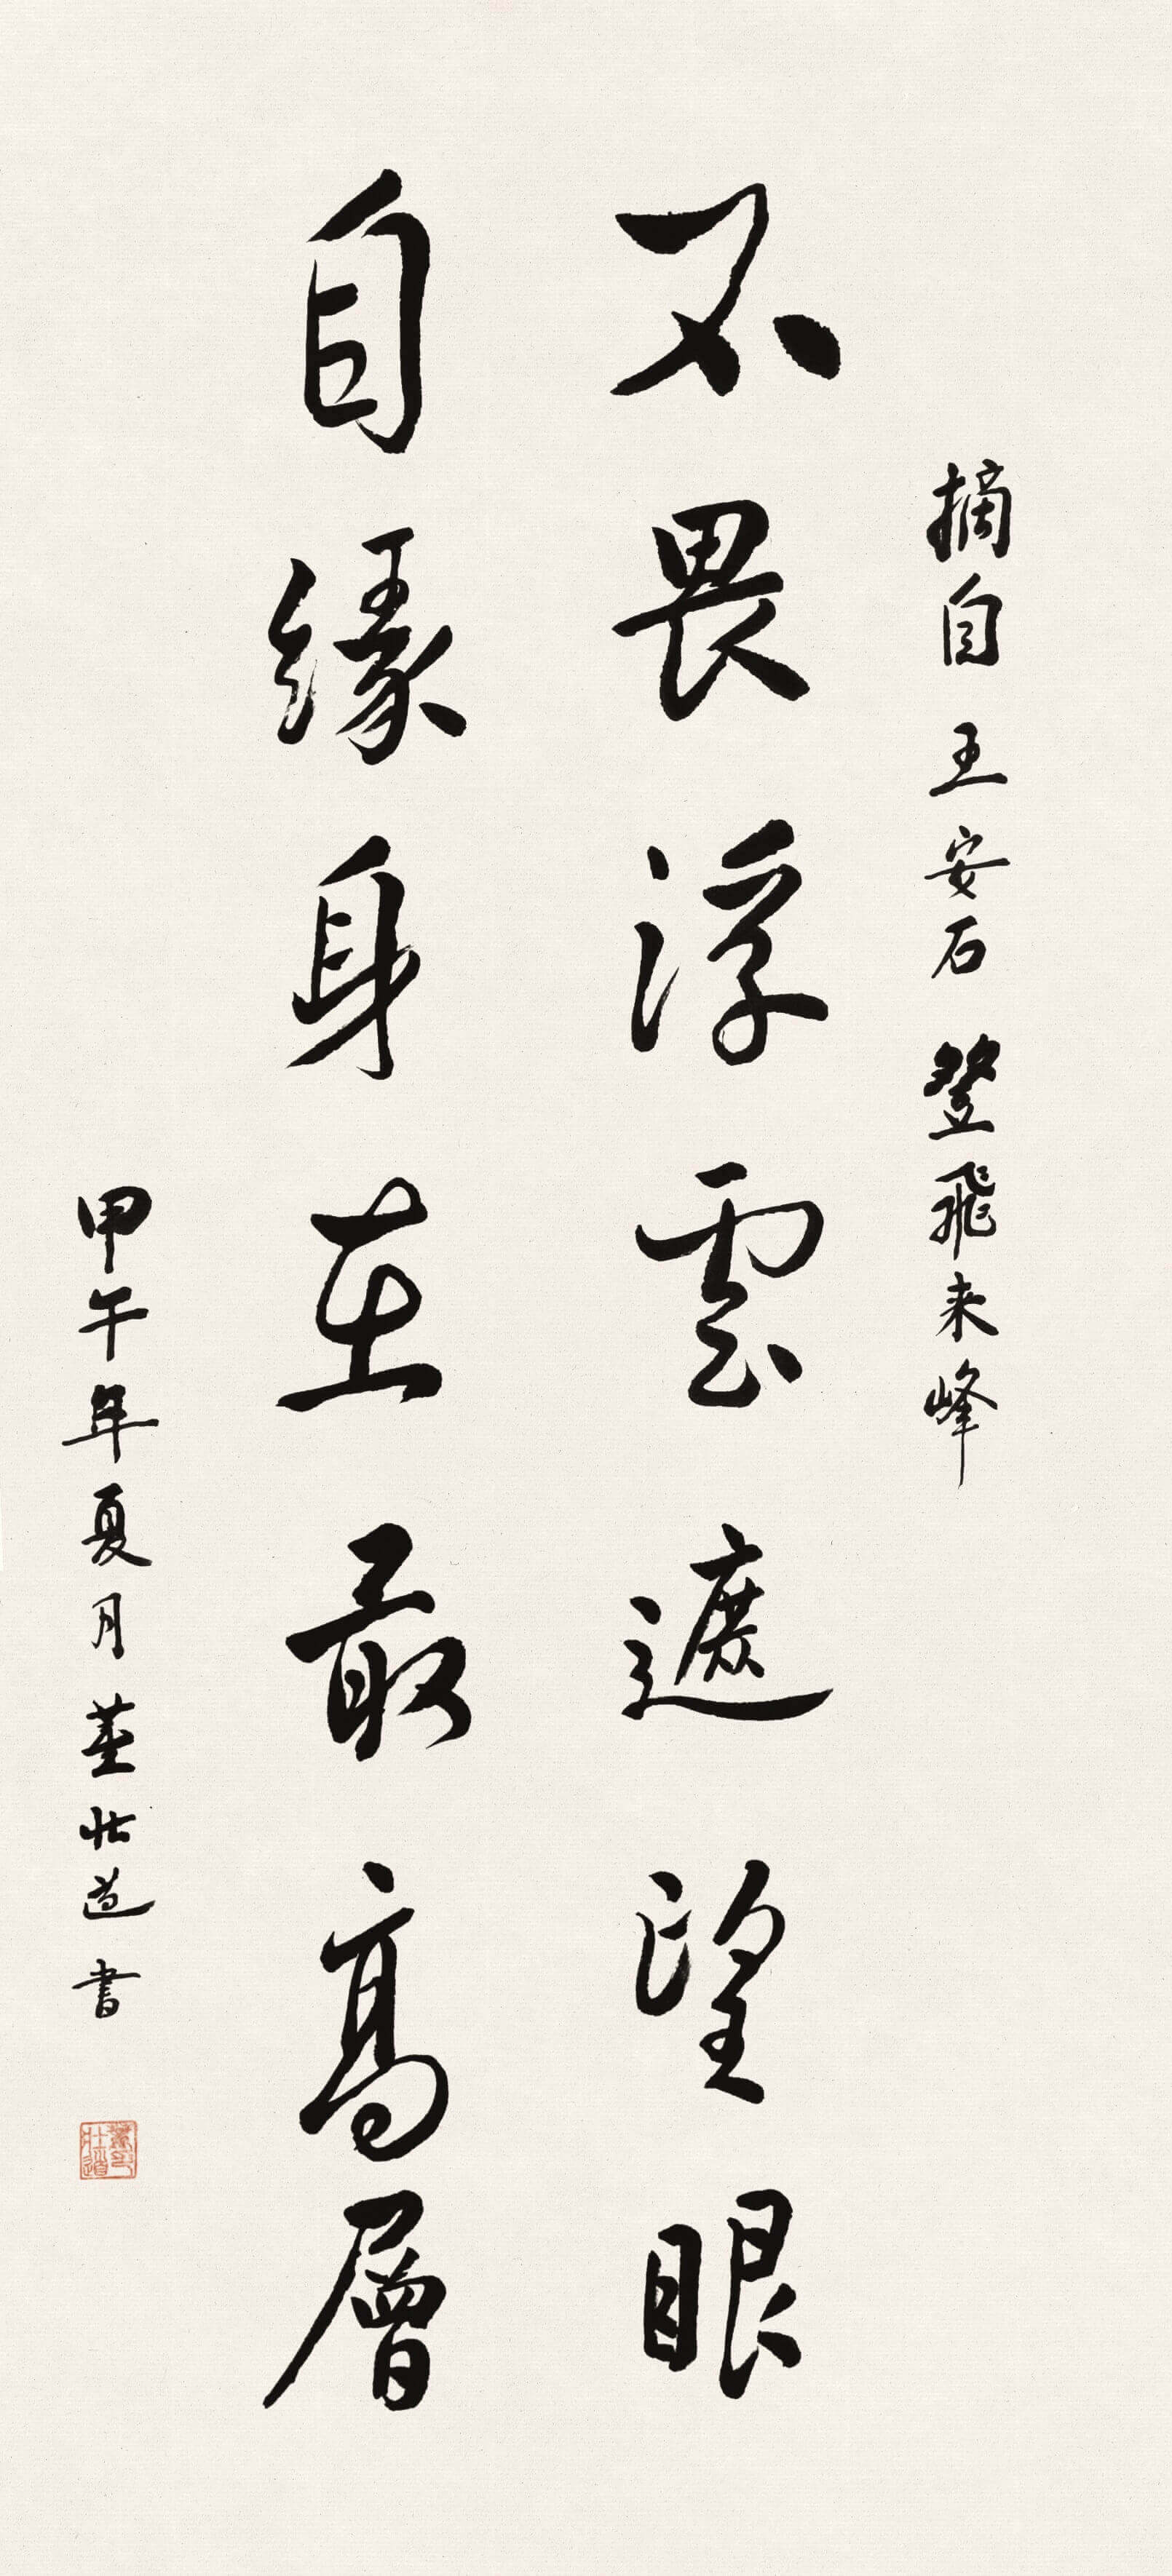 摘自王安石登飛来峰
不畏浮雲遮望眼
自緣身在最高層
甲午年夏月董壯道書